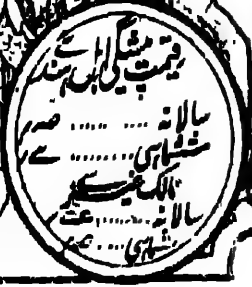 قیمت پیشگی اہل ہند سے
سالانہ ......
ششماہی ........
ممالک غیر سے
سالانہ ........
ششماہی ....